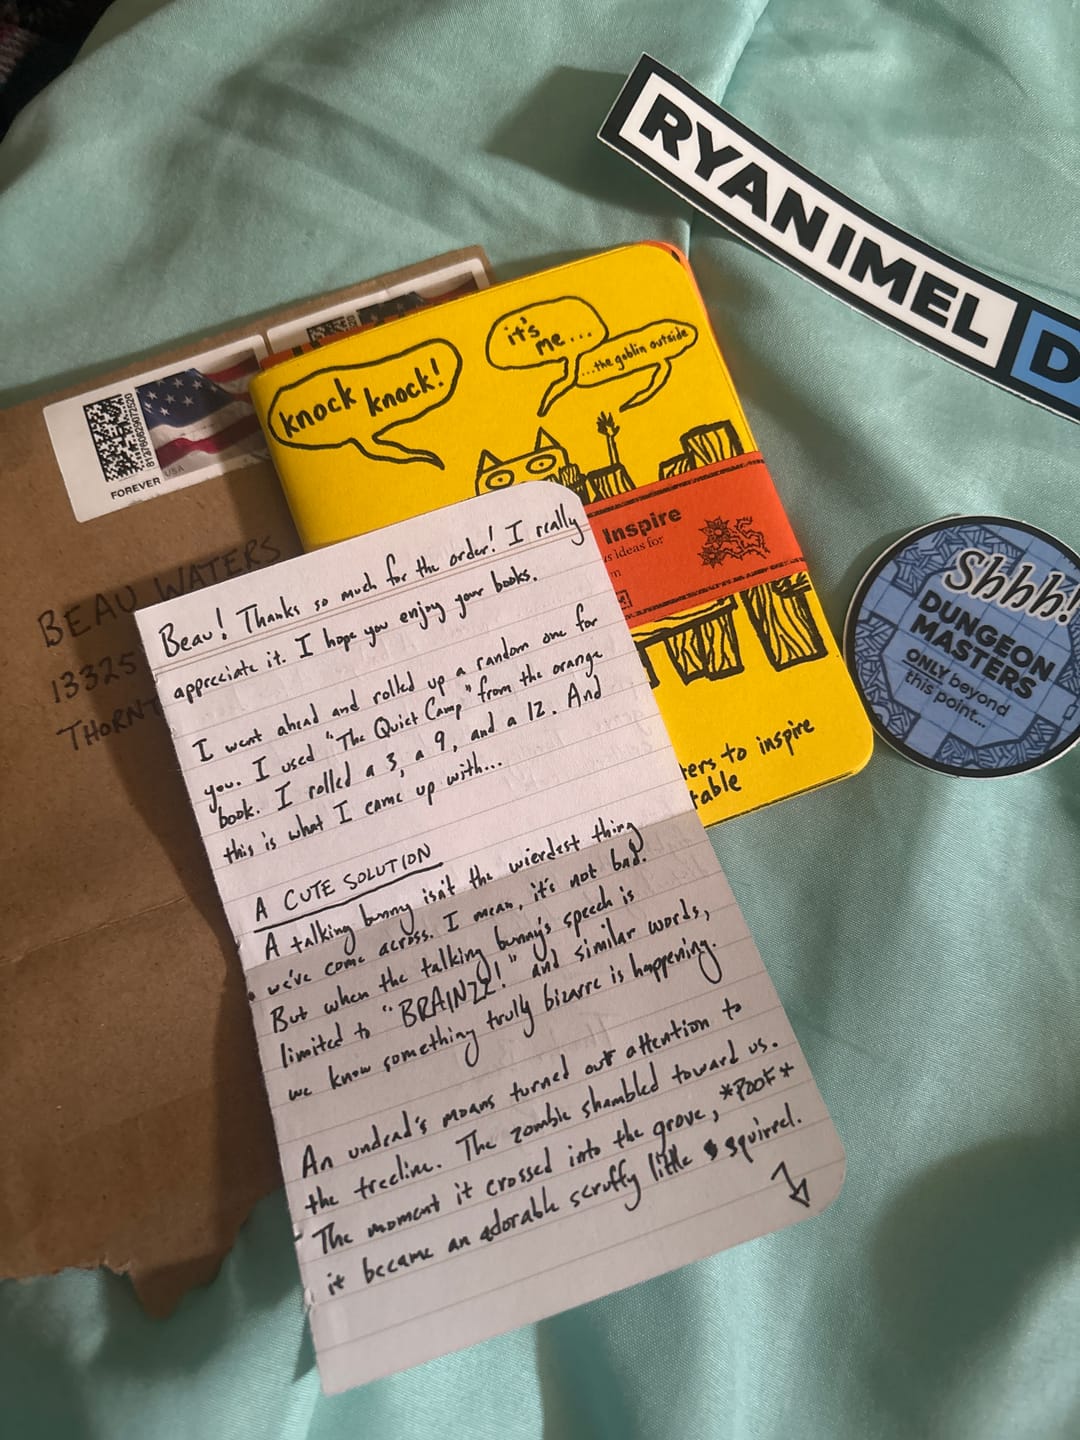 RYANIMEL D
813760629072520
USA
FOREVER
knock
knock!
it's
me...
...the goblin outside
Inspire
ideas for
Shhh!
DUNGEON
MASTERS
ONLY beyond
this point...
to inspire
table
BEAU WATERS
13325
Beau! Thanks so much for the order! I really
appreciate it. I hope you enjoy your books.
I went ahead and rolled up a random one for
you. I used "The Quiet Camp" from the orange
book. I rolled a 3, a 9, and a 12. And
this is what I came up with...
A CUTE SOLUTION
A talking bunny isn't the wierdest thing
we've come across. I mean, it's not bad.
But when the talking bunny's speech is
limited to "BRAINZZ!" and similar words,
we know something truly bizarre is happening.
An undead's moans turned our attention to
the treeline. The zombie shambled toward us.
The moment it crossed into the grove, *POOF*
it became an adorable scruffy little squirrel.